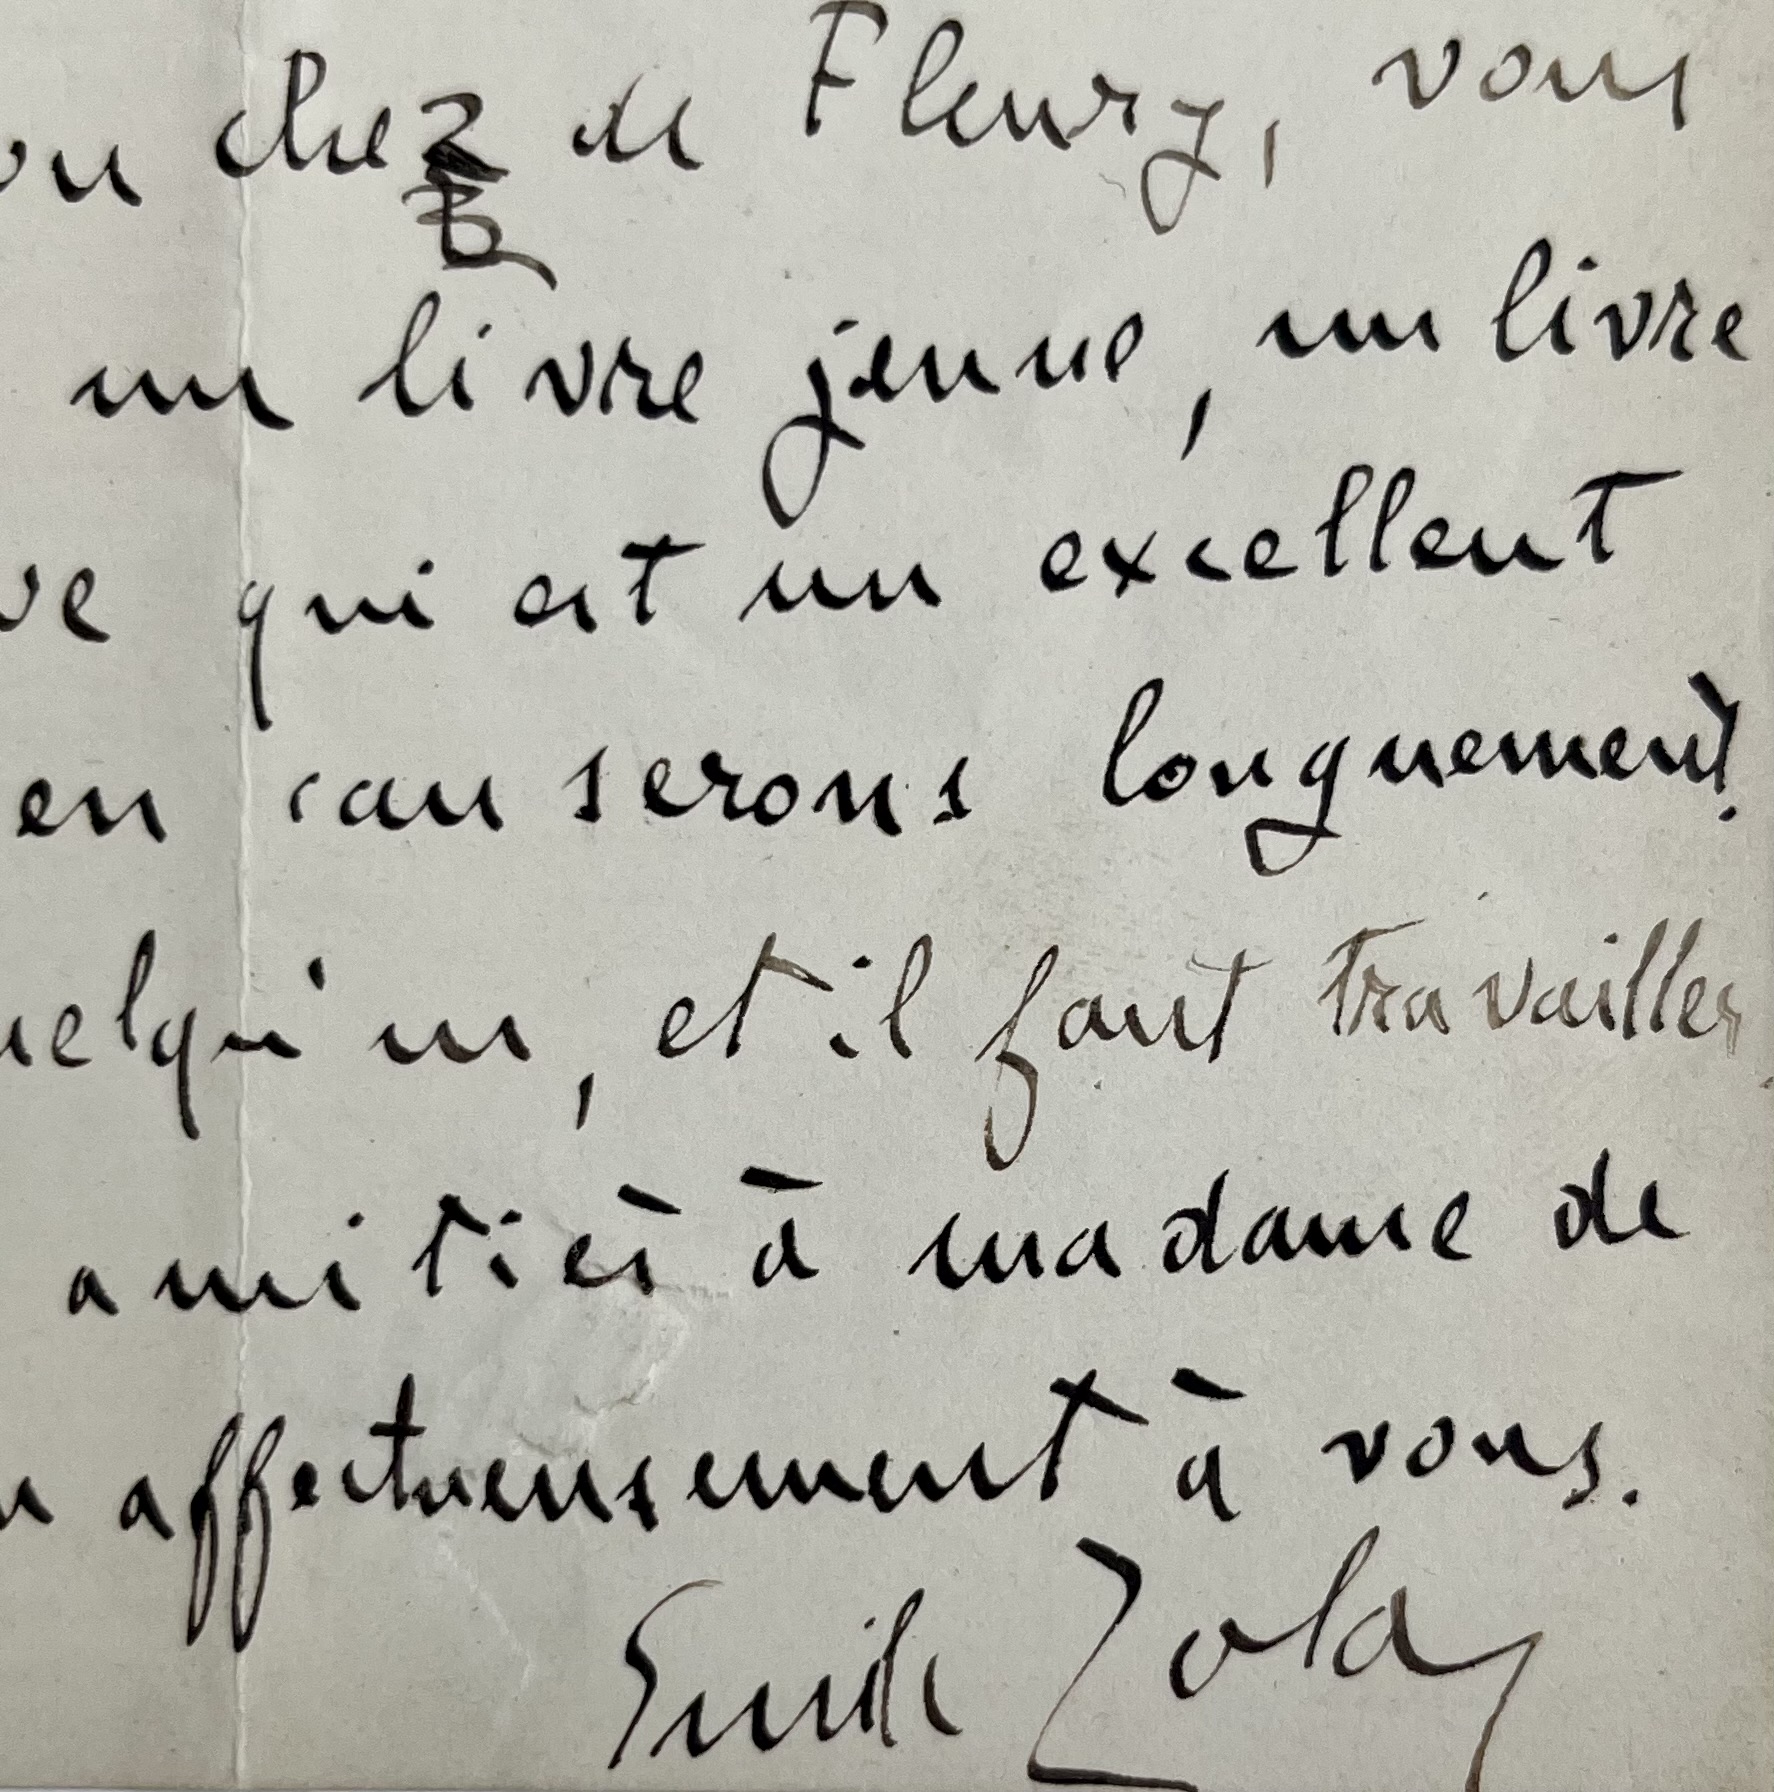 ou chez de Fleury, vous
un livre jeune, un livre
ve qui est un excellent
en causerons longuement.
uelqu'un, et il faut travailler
amitiés à madame de
affectueusement à vous.
Emile Zola